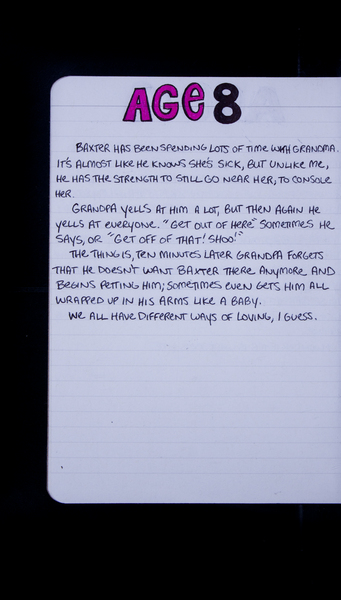 AGE 8
BAXTER HAS BEEN SPENDING LOTS OF TIME WITH GRANDMA.
IT'S ALMOST LIKE HE KNOWS SHE'S SICK, BUT UNLIKE ME,
HE HAS THE STRENGTH TO STILL GO NEAR HER, TO CONSOLE
HER.
GRANDPA YELLS AT HIM A LOT, BUT THEN AGAIN HE
YELLS AT EVERYONE. "GET OUT OF HERE" SOMETIMES HE
SAYS, OR "GET OFF OF THAT! SHOO!"
THE THING IS, TEN MINUTES LATER GRANDPA FORGETS
THAT HE DOESN'T WANT BAXTER THERE ANYMORE AND
BEGINS PETTING HIM; SOMETIMES EVEN GETS HIM ALL
WRAPPED UP IN HIS ARMS LIKE A BABY.
WE ALL HAVE DIFFERENT WAYS OF LOVING, I GUESS.